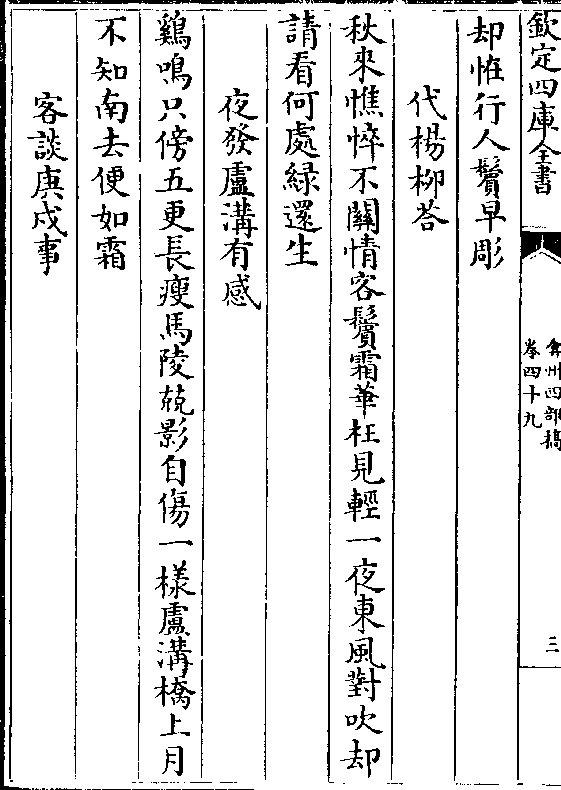 欽定四庫全書
弇州四部稿
卷四十九
三
却恠行人鬢早彫
代楊柳荅
秋來憔悴不關情客鬢霜華枉見輕一夜東風對吹却
請看何處緑還生
夜發盧溝有感
鷄鳴只傍五更長瘦馬陵兢影自傷一樣盧溝橋上月
不知南去便如霜
客談庚戍事